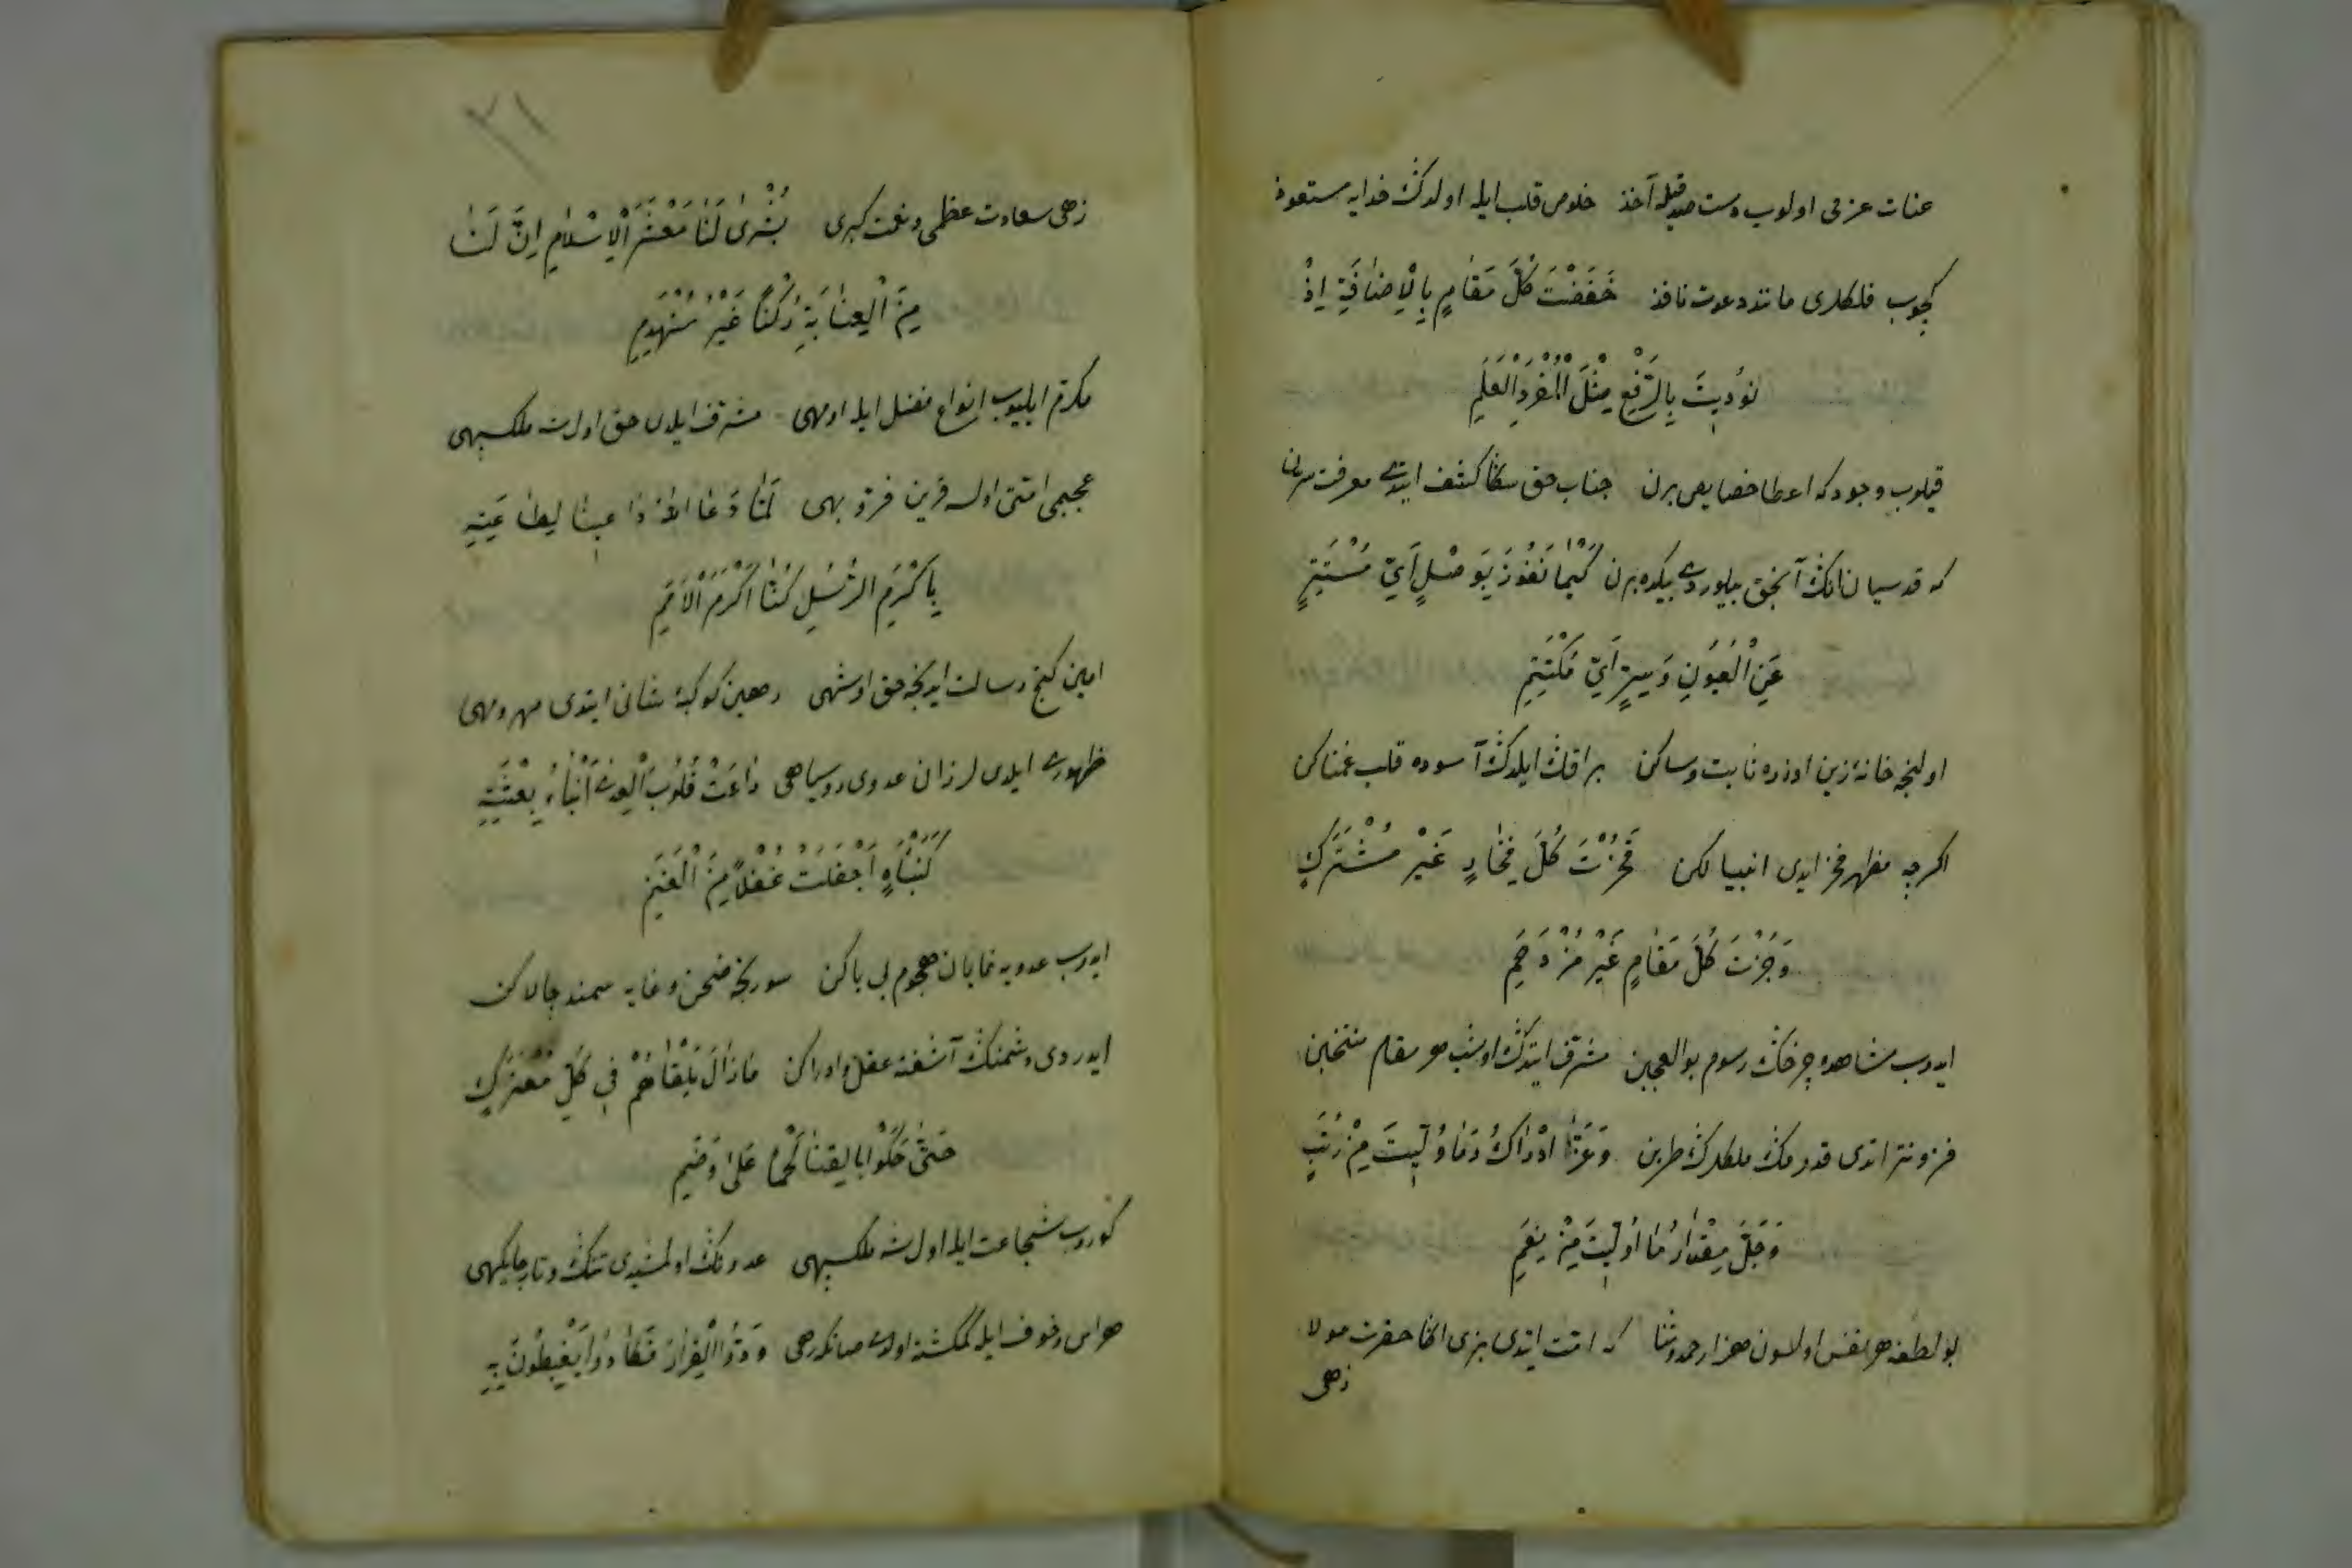 عنان عزمی اولوب دست صدقیله آخذ خلوص قلب ایله اولدڭ خدایه مستعوذ
کچوب فلکلری مانند دعوت نافذ خَفَضْتَ كُلَّ مَقَامٍ بِالْاِضَافَةِ اِذْ
نُودِيتَ بِالرَّفْعِ مِثْلَ الْمُفْرَدِ الْعَلَمِ
قیلوب وجودکه اعطا خصایص برن جناب حق سڭا کشف ایتدی معرفت سرن
که قدسیان انڭ آنجق بیلوردی بیکده برن كَيْمَا تَفُوزَ بِوَصْلٍ اَيِّ مُسْتَتِرٍ
عَنِ الْعُيُونِ وَسِرٍّ اَيِّ مُكْتَتِمِ
اولنجه خانهٔ زین اوزره ثابت و ساکن براقڭ ایلدڭ آسوده قلب غمناکن
اکرچه مظهر فخر ایدی انبیا لکن فَحُزْتَ كُلَّ فِخَارٍ غَيْرَ مُشْتَرَكٍ
وَجُزْتَ كُلَّ مَقَامٍ غَيْرَ مُزْدَحَمِ
ایدوب مشاهده چرخڭ رسوم بوالعجبین مشرف ایتدڭ اوشب هر مقام منتخبین
فزونتر اتدی قدومڭ ملکلرڭ طربن وَعَزَّ اِدْرَاكُ مَا وُلِّيتَ مِنْ رُتَبٍ
وَجَلَّ مِقْدَارُ مَا اُولِيتَ مِنْ نِعَمِ
بو لطفه هر نفس اولسون هزار حمد و ثنا که امت ایتدی بزی اڭا حضرت مولا
زهی
٢١
زهی سعادت عظمی و نعمت کبری بُشْرٰى لَنَا مَعْشَرَ الْاِسْلَامِ اِنَّ لَنَا
مِنَ الْعِنَايَةِ رُكْنًا غَيْرَ مُنْهَدِمِ
مکرم ایلیوب انواع فضل ایله اومهی مشرف ایلدی حق اول شه ملک سپهی
عجبمی امتی اولسه قرین فرّ و بهی لَمَّا دَعَا اللهُ دَاعِينَا لِطَاعَتِهِ
بِاَكْرَمِ الرُّسْلِ كُنَّا اَكْرَمَ الْاُمَمِ
امین کنج رسالت ایدنجه حق اوشهی رهین کوکبهٔ شانی ایتدی مهر و مهی
ظهوری ایلدی لرزان عدوی روسیاهی رَاعَتْ قُلُوبَ الْعِدٰى اَنْبَاءُ بِعْثَتِهِ
كَنَبْأَةٍ اَجْفَلَتْ غُفْلًا مِنَ الْغَنَمِ
ایدوب عدویه نمایان هجوم بی باکن سورنجه صحن وغایه سمند چالاکن
ایدردی دشمنڭ آشفته عقل و ادراکن مَا زَالَ يَلْقَاهُمُ فِي كُلِّ مُعْتَرَكٍ
حَتَّى حَكَوْا بِالْقَنَا لَحْمًا عَلَى وَضَمِ
کوروب شجاعت ایله اول شه ملک سپهی عدونڭ اولمشیدی تنڭ و تار جایکهی
هراس و خوف ایله کمکشته اولدی صانکه رهی وَدُّوا الْفِرَارَ فَكَادُوا يَغْبِطُونَ بِهِ